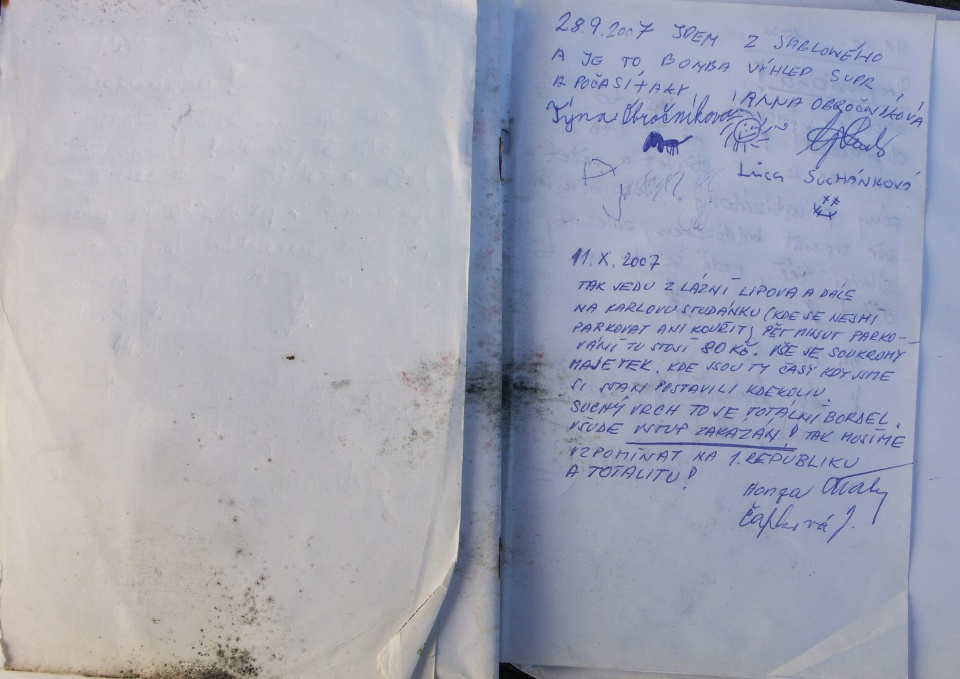 28.9.2007 JDEM Z JABLOWÉHO
A JE TO BOMBA VÝHLED SUPR
A POČASÍ TAKY ANNA OBROČNÍKOVÁ
Týna Obročníková
Lůca SUCHÁNKOVÁ
11. X. 2007
TAK JEDU Z LÁZNÍ LIPOVÁ A DÁLE
NA KARLOVU STUDÁNKU (KDE SE NESMÍ
PARKOVAT ANI KOUŘIT) PĚT MINUT PARKO-
VÁNÍ TU STOJÍ 80 Kč. VŠE JE SOUKROMÝ
MAJETEK. KDE JSOU TY ČASY KDY JSME
SI STAN POSTAVILI KDEKOLIV.
SUCHÝ VRCH TO JE TOTÁLNÍ BORDEL.
VŠUDE VSTUP ZAKÁZÁN! TAK MUSÍME
VZPOMÍNAT NA 1. REPUBLIKU
A TOTALITU!
Honza
Čapková J.